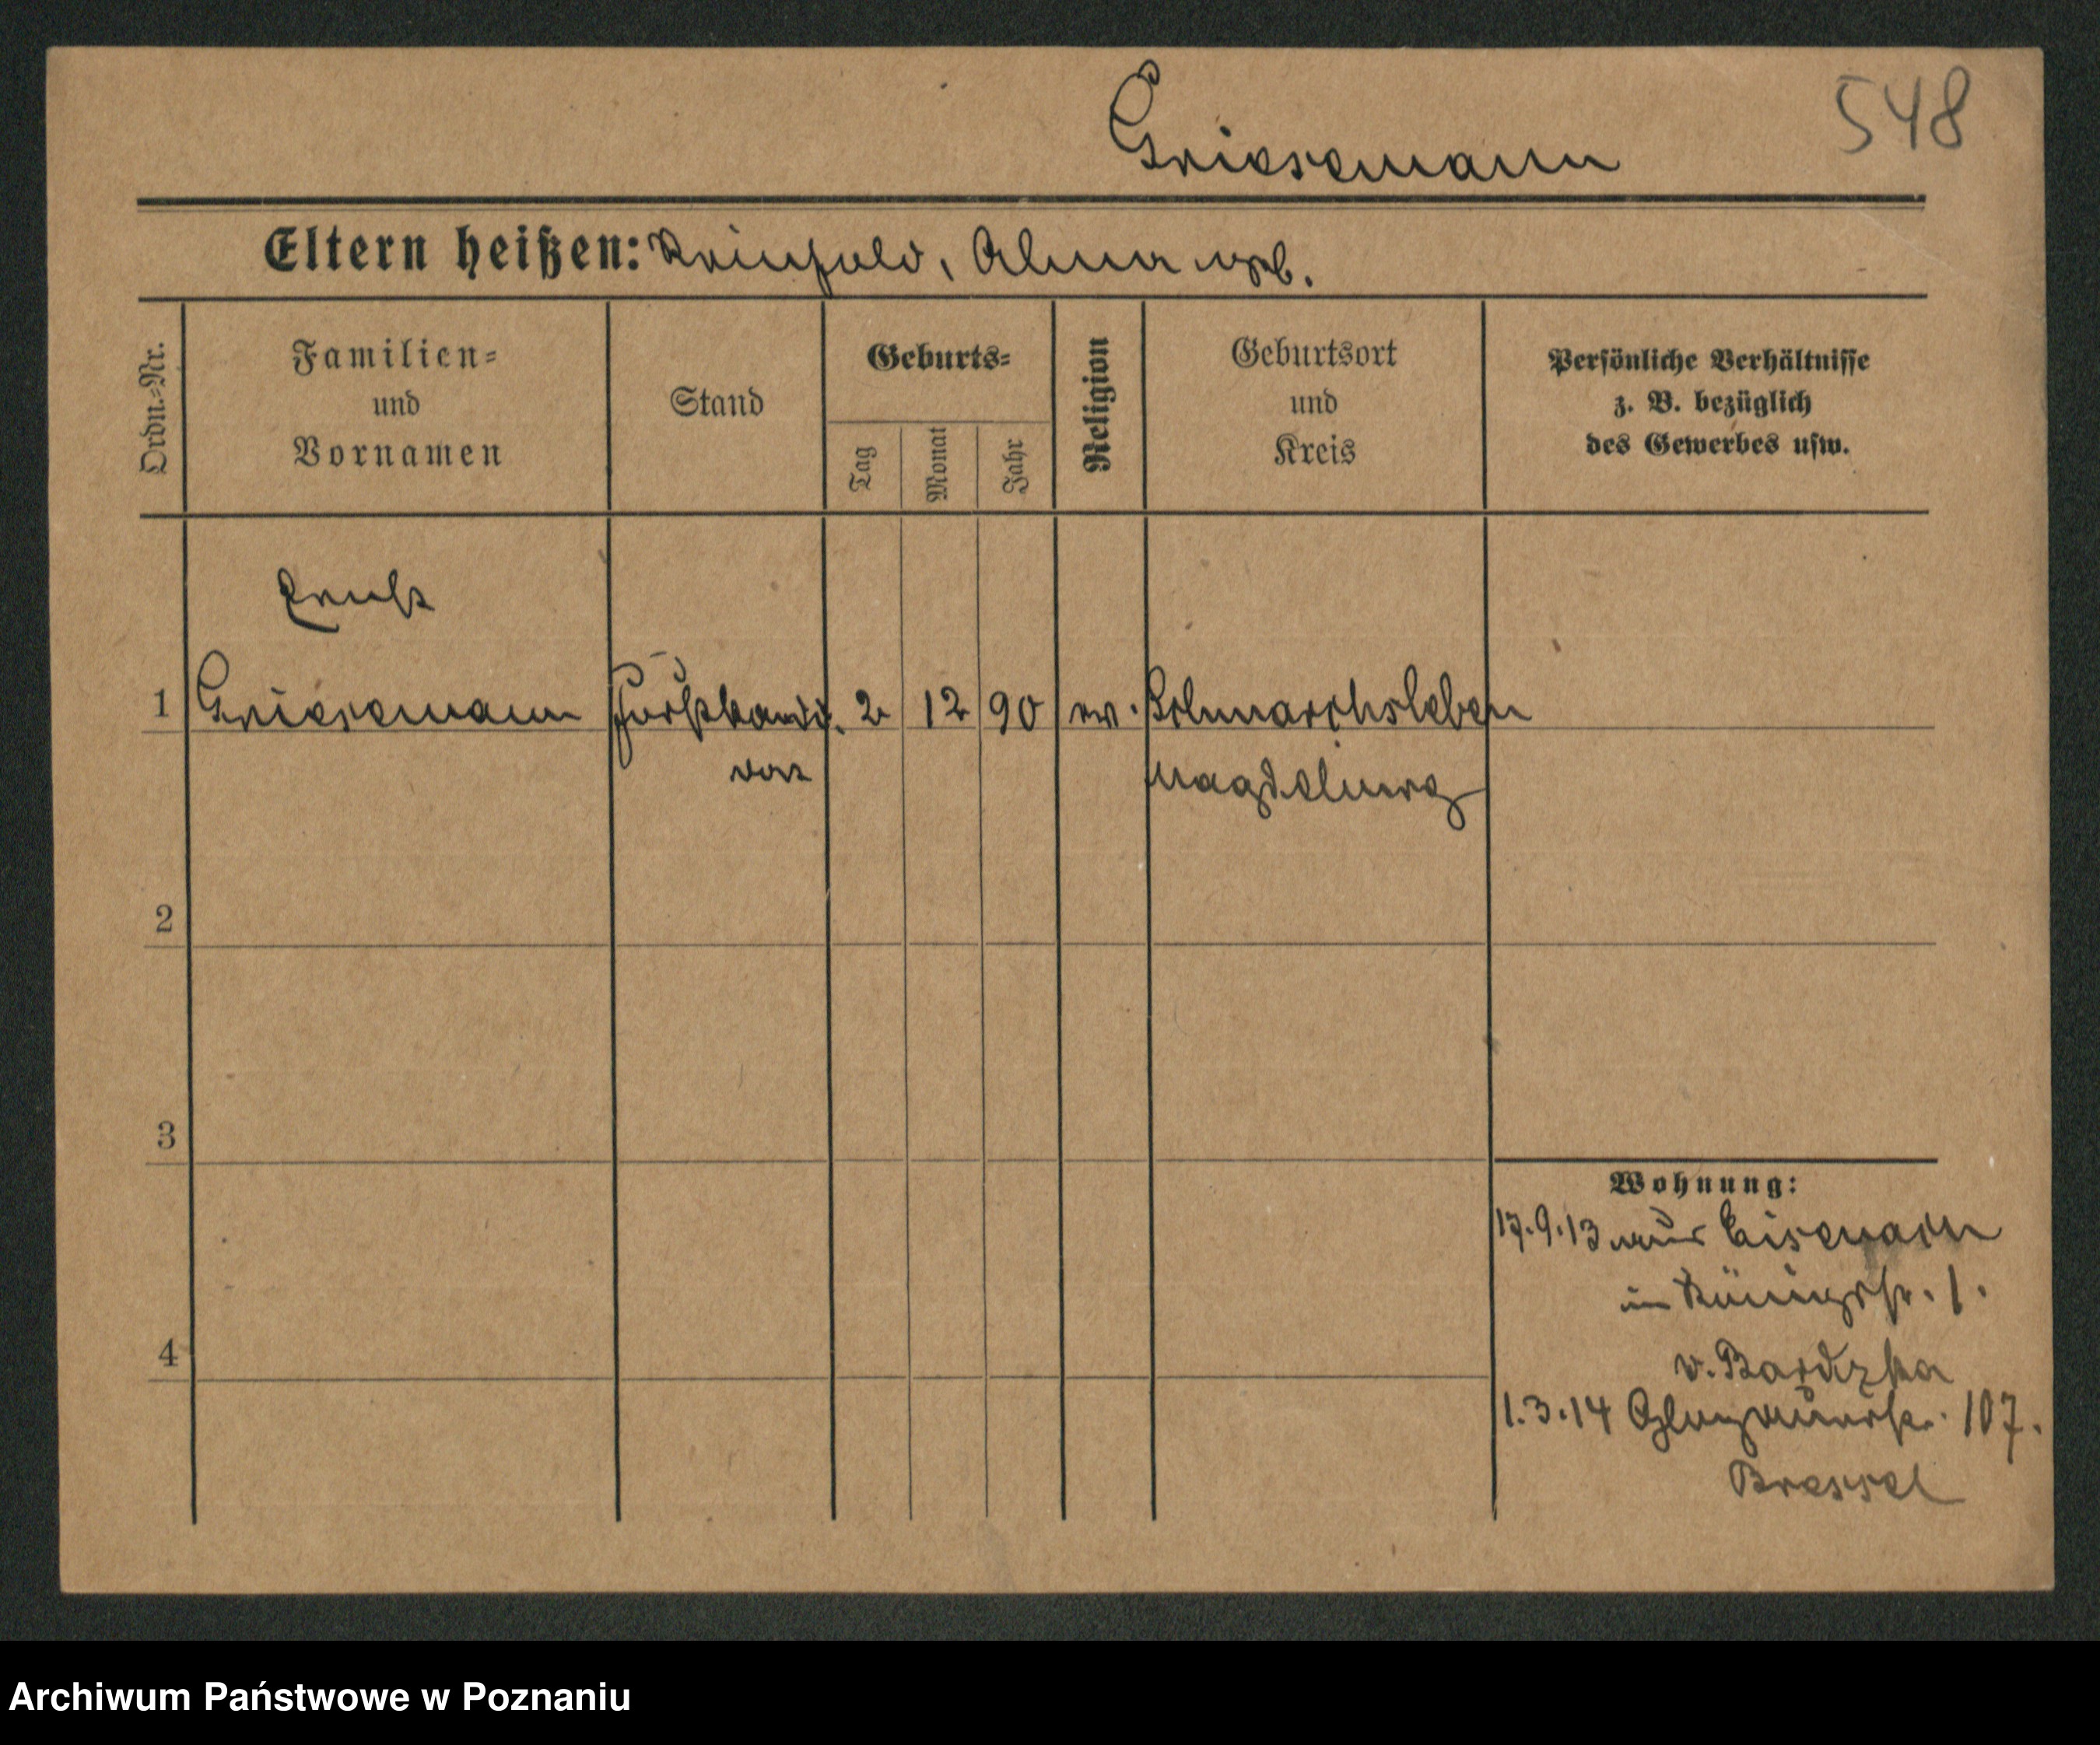 Griesemann
548
Eltern heißen: Reinhold, Alma geb.
Ordn.-Nr.
Familien-
und
Vornamen
Stand
Geburts-
Tag
Monat
Jahr
Religion
Geburtsort
und
Kreis
Persönliche Verhältnisse
z. B. bezüglich
des Gewerbes usw.
Ernst
1 Griesemann Forstkandi. 2 12 90 ev. Bahrendorf
Magdeburg
2
3
4
Wohnung:
17.9.13 aus
in Königstr. 1.
v.
1.3.14 Glogauerstr. 107.
Bressel
Archiwum Państwowe w Poznaniu